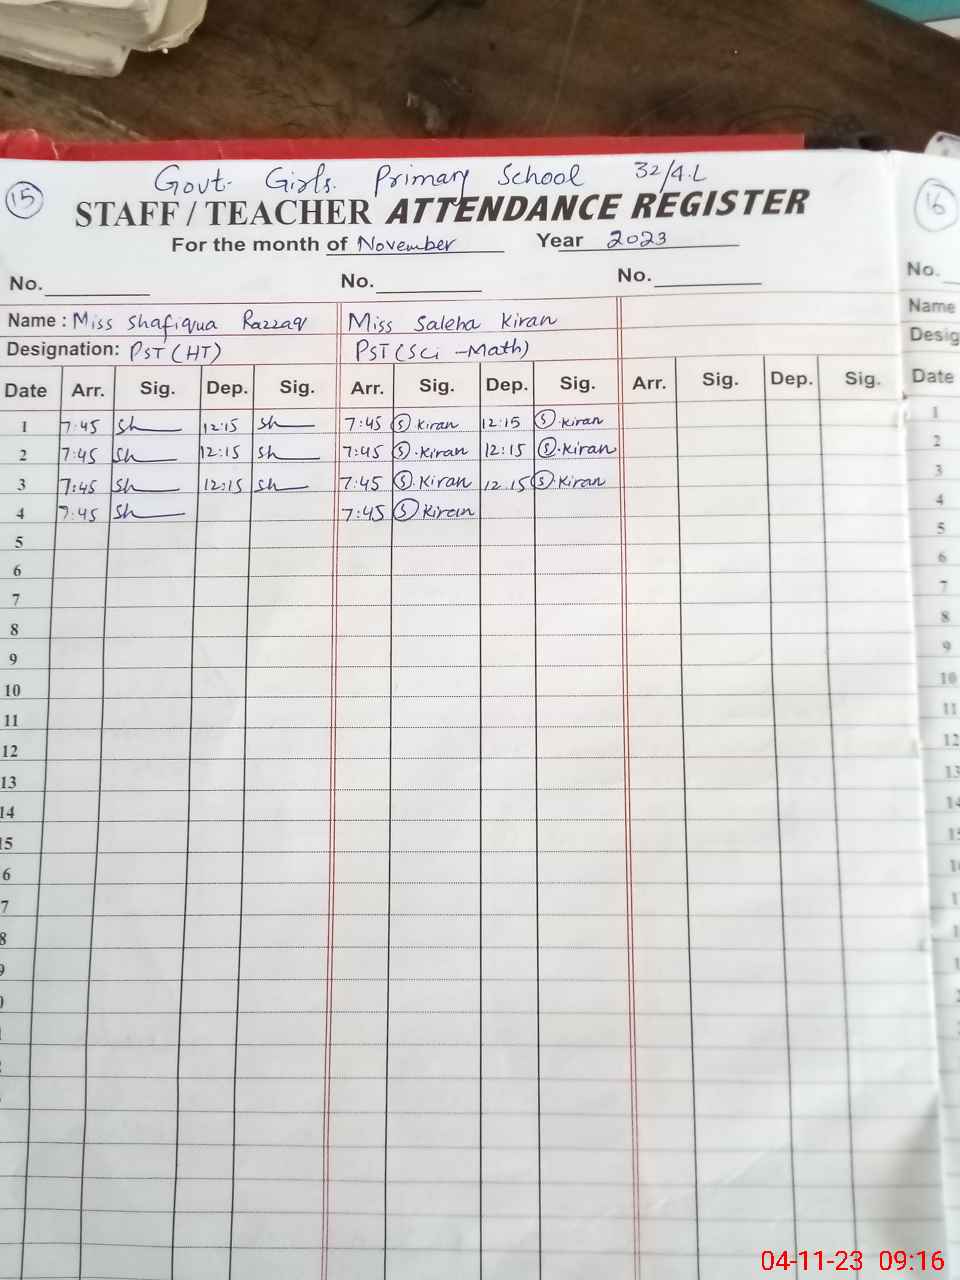 Govt. Girls. Primary School 32/4.L
15
STAFF / TEACHER ATTENDANCE REGISTER
16
For the month of November Year 2023
No. No. No. No.
Name : Miss Shafiqua Razzaq Miss Saleha Kiran Name
Designation: PST (HT) PST (Sci - Math) Desig
Date Arr. Sig. Dep. Sig. Arr. Sig. Dep. Sig. Arr. Sig. Dep. Sig. Date
1 7:45 Sh 12:15 Sh 7:45 S. Kiran 12:15 S. Kiran 1
2 7:45 Sh 12:15 Sh 7:45 S. Kiran 12:15 S. Kiran 2
3 7:45 Sh 12:15 Sh 7:45 S. Kiran 12.15 S. Kiran 3
4 7:45 Sh 7:45 S Kiran 4
5 5
6 6
7 7
8 8
9 9
10 10
11 11
12 12
13 13
14 14
15 15
6 1
7 1
8 1
9 1
04-11-23 09:16